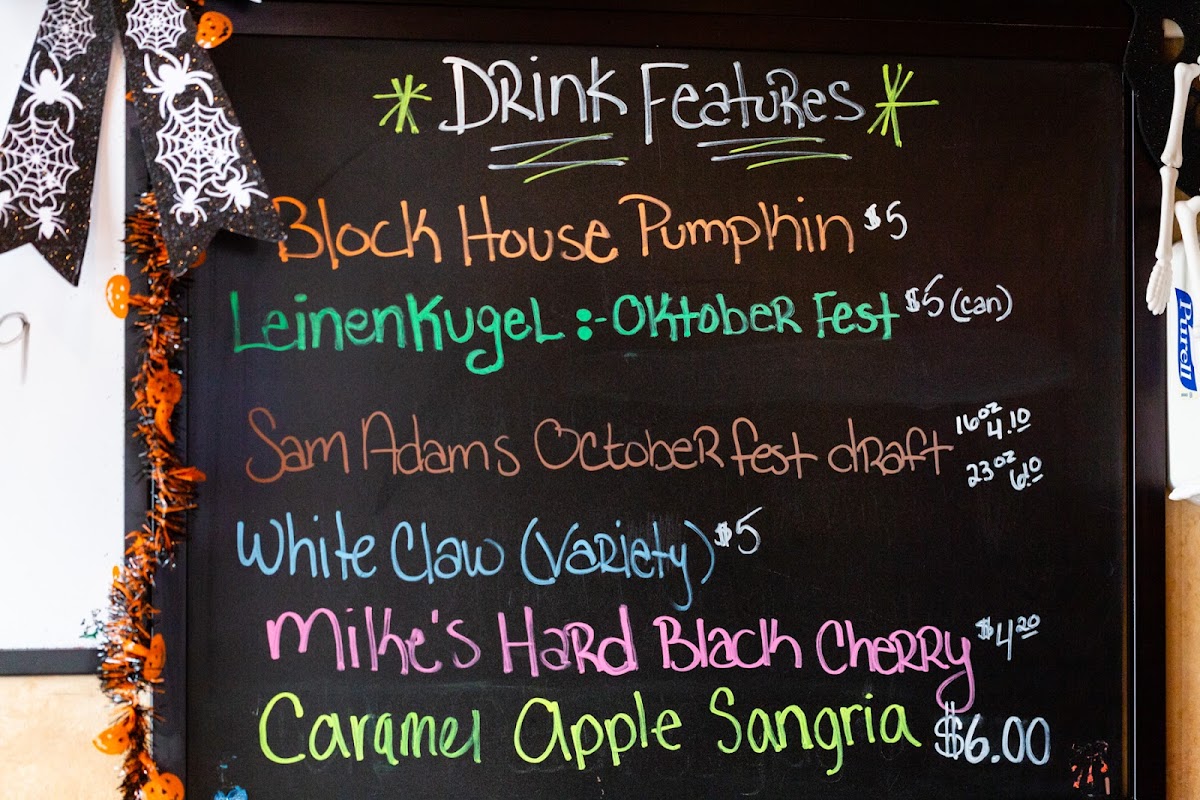 * Drink Features *
Block House Pumpkin $5
Leinenkugel :- Oktober Fest $5 (can)
Sam Adams October fest draft 16oz 4.10
23oz 6.10
White Claw (Variety) $5
Mike's Hard Black Cherry $4.20
Caramel Apple Sangria $6.00
Purell
9